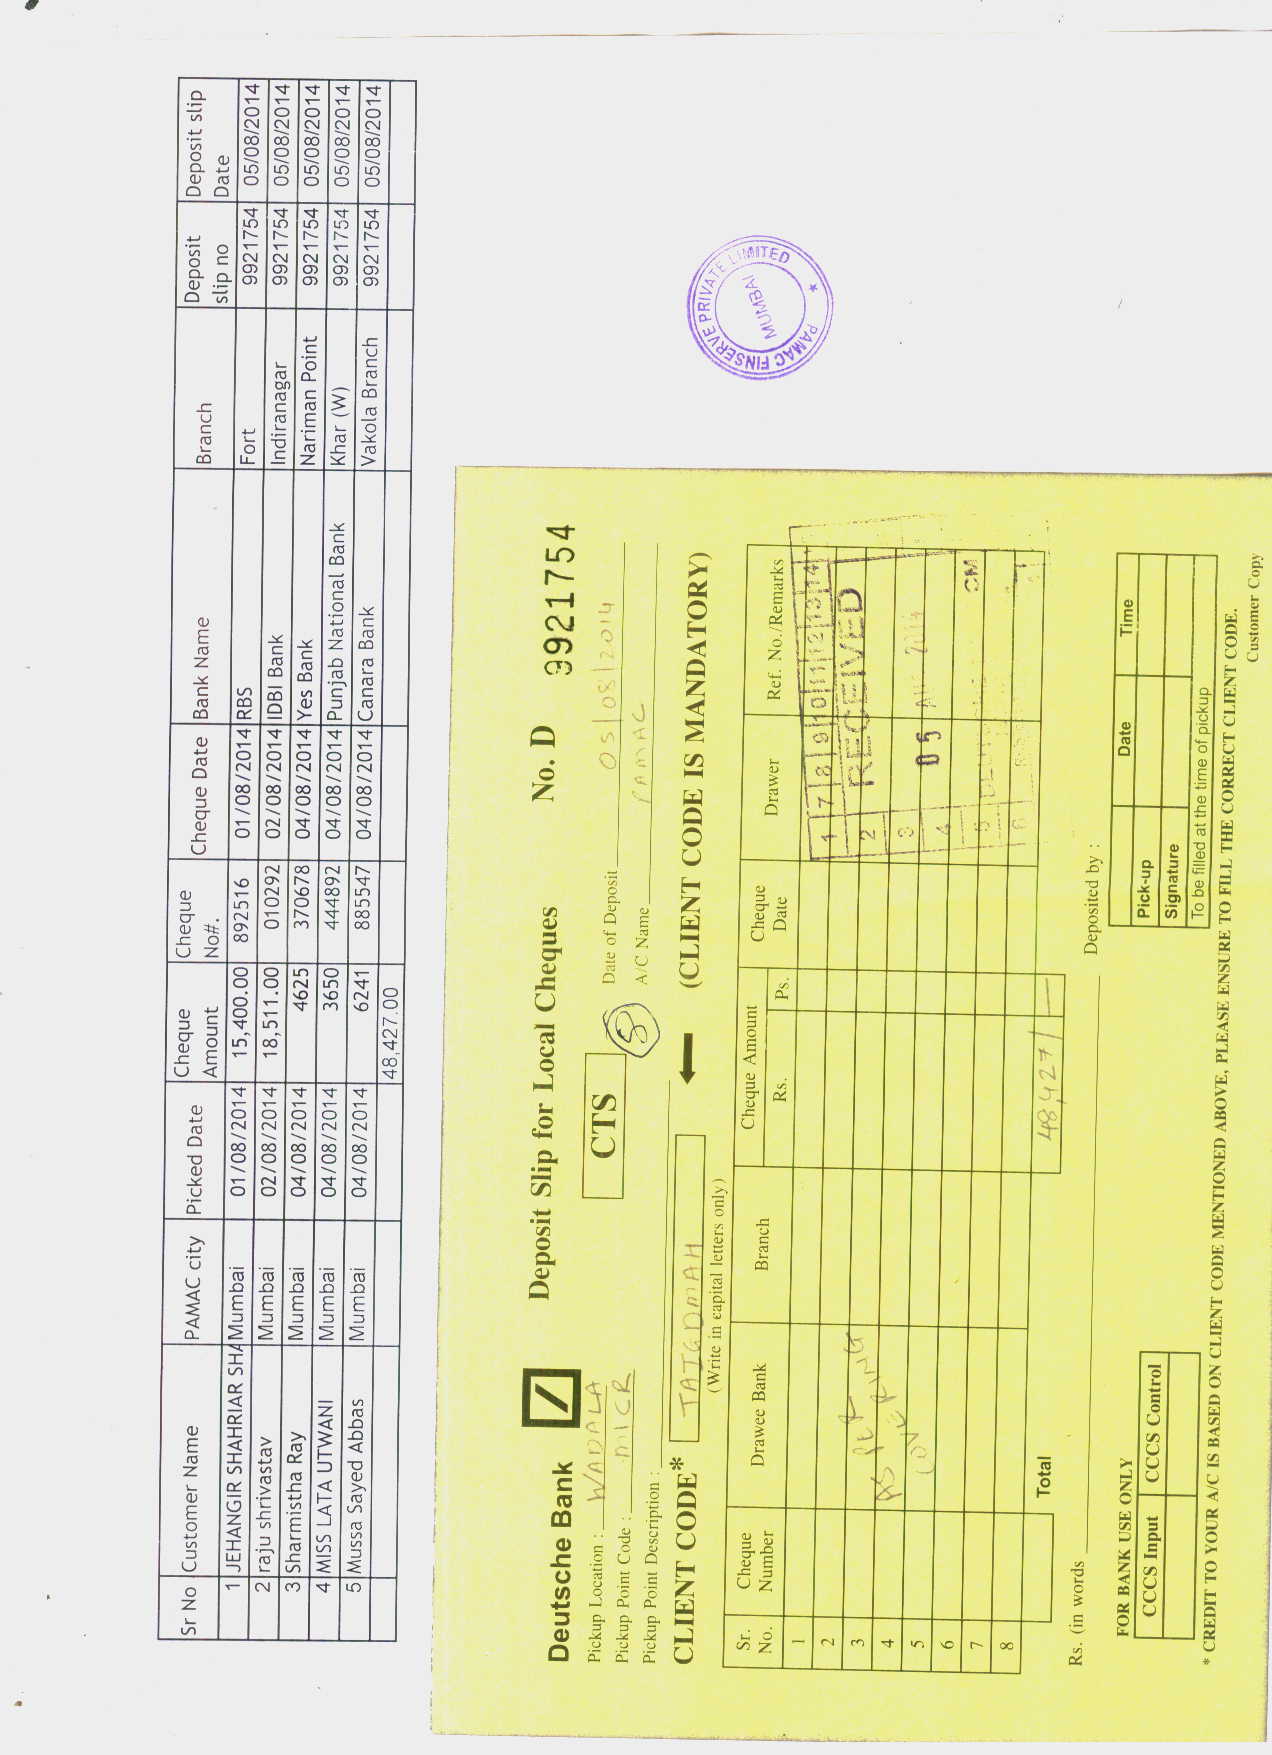 Sr No Customer Name PAMAC city Picked Date Cheque Amount Cheque No#. Cheque Date Bank Name Branch Deposit slip no Deposit slip Date
1 JEHANGIR SHAHRIAR SHA Mumbai 01/08/2014 15,400.00 892516 01/08/2014 RBS Fort 9921754 05/08/2014
2 raju shrivastav Mumbai 02/08/2014 18,511.00 010292 02/08/2014 IDBI Bank Indiranagar 9921754 05/08/2014
3 Sharmistha Ray Mumbai 04/08/2014 4625 370678 04/08/2014 Yes Bank Nariman Point 9921754 05/08/2014
4 MISS LATA UTWANI Mumbai 04/08/2014 3650 444892 04/08/2014 Punjab National Bank Khar (W) 9921754 05/08/2014
5 Mussa Sayed Abbas Mumbai 04/08/2014 6241 885547 04/08/2014 Canara Bank Vakola Branch 9921754 05/08/2014
48,427.00
PAMAC FINSERVE PRIVATE LIMITED ★
MUMBAI
Deutsche Bank Deposit Slip for Local Cheques No. D 9921754
Pickup Location : WADALA CTS 5 Date of Deposit 05/08/2014
Pickup Point Code : MICR A/C Name PAMAC
Pickup Point Description :
CLIENT CODE* TATGDMAH (CLIENT CODE IS MANDATORY)
(Write in capital letters only)
Sr. No. Cheque Number Drawee Bank Branch Cheque Amount Rs. Ps. Cheque Date Drawer Ref. No./Remarks
1
2
3
4
5
6
7
8
AS PER
COVERING
1 7 8 9 10 11 12 13 14
2 RECEIVED
3
4 05 AUG 2014
5
6
CM
Total 48,427/-
Rs. (in words Deposited by :
FOR BANK USE ONLY
CCCS Input CCCS Control
Pick-up Date Time
Signature
To be filled at the time of pickup
* CREDIT TO YOUR A/C IS BASED ON CLIENT CODE MENTIONED ABOVE, PLEASE ENSURE TO FILL THE CORRECT CLIENT CODE.
Customer Copy